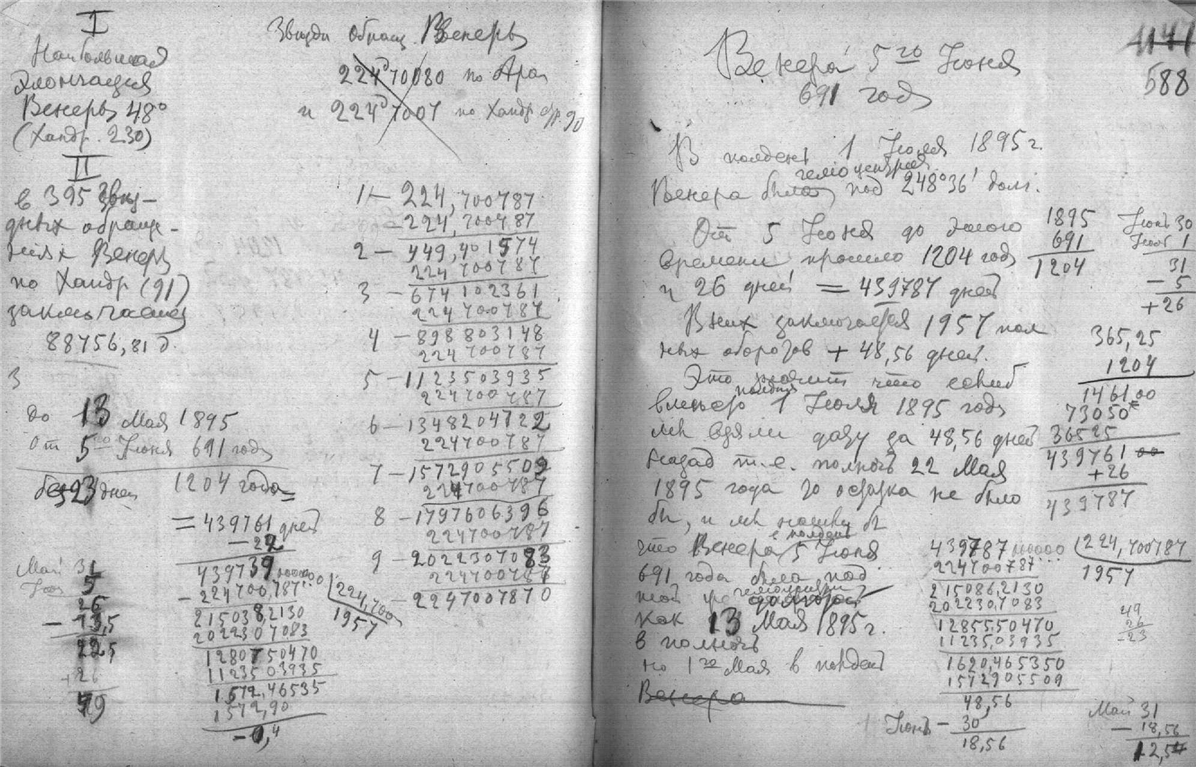 I
Наибольшая
Элонгация
Венеры 48°
(Хандр. 230)
II
в 395 звѣз-
дных обраще-
ниях Венеры
по Хандр (91)
заключается
88756,81 д.
3
до 13 Мая 1895
от 5го Июня 691 года
без 23 дней 1204 года
= 439761 дней
- 22
439739
- 224700,787
224,700
1957
215038,2130
202230,7083
1280750470
1123503935
1572,46535
1572,90
-0,4
Май 31
5
26
- 13,5
22,5
+26
49
Звѣзди обращ. Венеры
224д70080 по Араг
и 224д7007 по Хандр стр. 90
1 - 224,700787
224,700787
2 - 449,401574
224700787
3 - 674102361
224700787
4 - 898803148
224700787
5 - 1123503935
224700787
6 - 1348204722
224700787
7 - 1572905509
224700787
8 - 1797606396
224700787
9 - 2022307083
224700787
- 2247007870
1141
588
Венера 5го Июня
691 года
В полдень 1 Июля 1895 г.
гелиоцентрич
Венера была под 248°36' долг.
От 5 Июня до этого
времени прошло 1204 года
и 26 дней = 439787 дней
В них заключается 1957 пол
ных оборотов + 48,56 дней.
Это значит что если б
полдня
вместо 1 Июля 1895 года
мы взяли дату за 48,56 дней
назад т.е. полночь 22 Мая
1895 года то остатка не было
бы, и мы нашли бы
в полдень
что Венера 5 Июня
691 года была под
той же долготой
как 13 Мая 1895 г.
в полночь
но 1го Мая в полдень
Венера
1895
691
1204
Июнь 30
1
31
- 5
+26
365,25
1204
146100
73050
36525
439761 00
+26
439787
439787 00000
224,700787
1957
224700787
215086,2130
202230,7083
1285550470
1123503935
1620,465350
1572905509
48,56
Июнь - 30
18,56
49
26
-23
Май 31
- 18,56
12,5